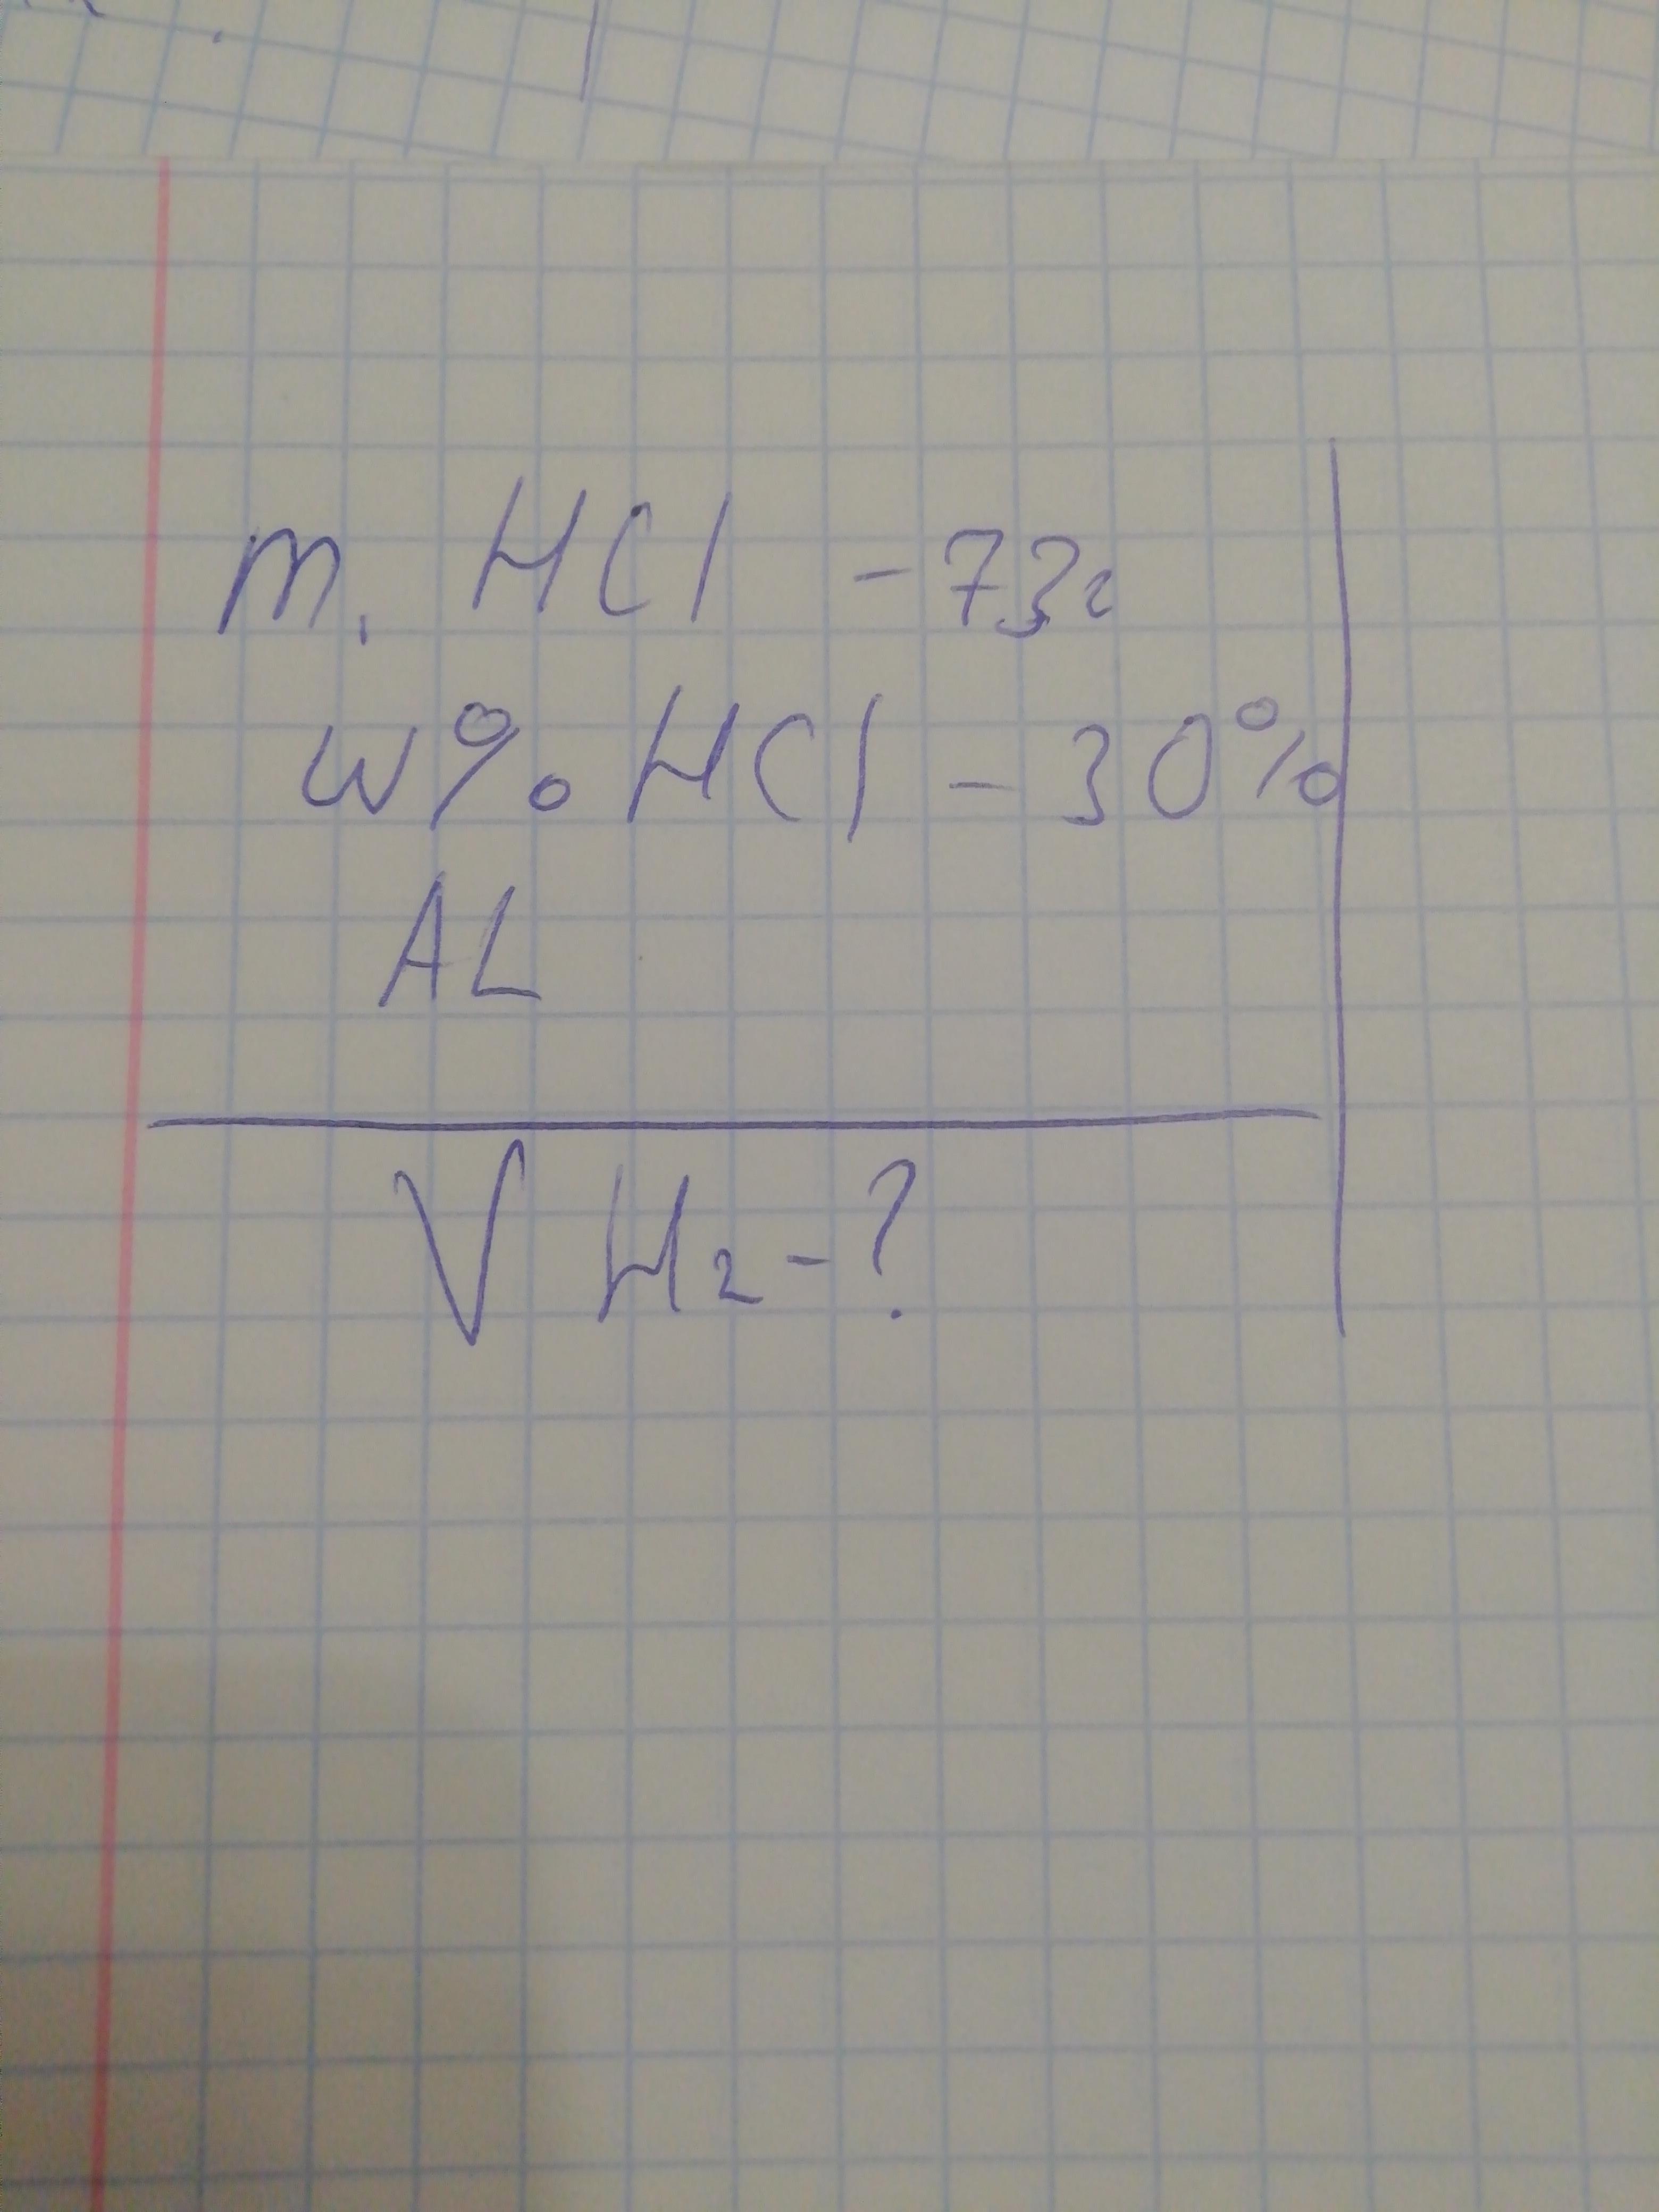 m. HCl - 73г
w% HCl - 30%
AL
V H2 - ?